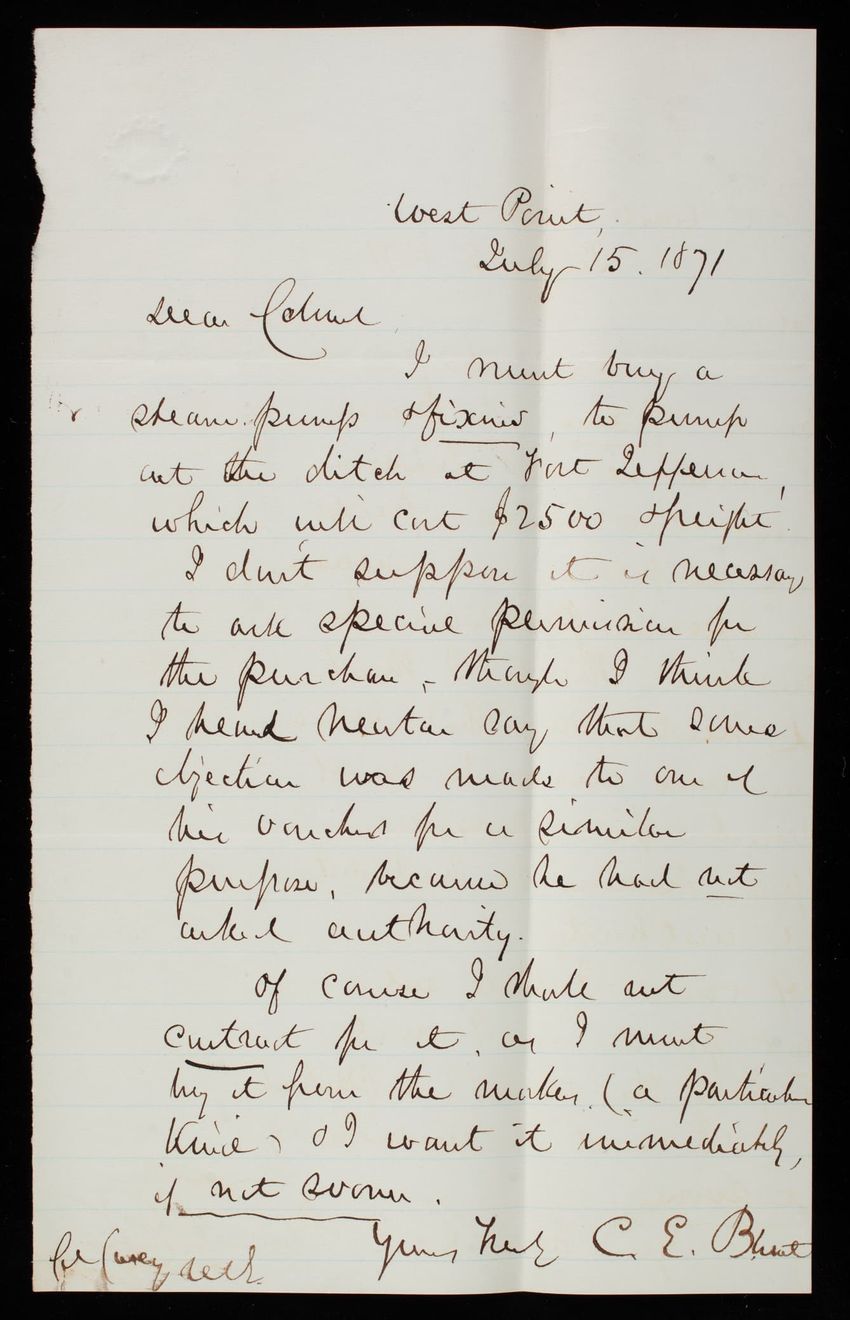 West Point,
July 15. 1871
Dear Colonel,
I must buy a
steam pump & fixins, to pump
out the ditch at Fort Jefferson,
which will cost $2500 & freight.
I don't suppose it is necessary
to ask special permission for
the purchase, – though I think
I heard Newton say that some
objection was made to one of
his vouchers for a similar
purpose, because he had not
asked authority.
Of course I shall not
contract for it, as I must
buy it from the maker, (a particular
kind) & I want it immediately,
if not sooner.
Yours truly C. E. Blunt
Col Casey